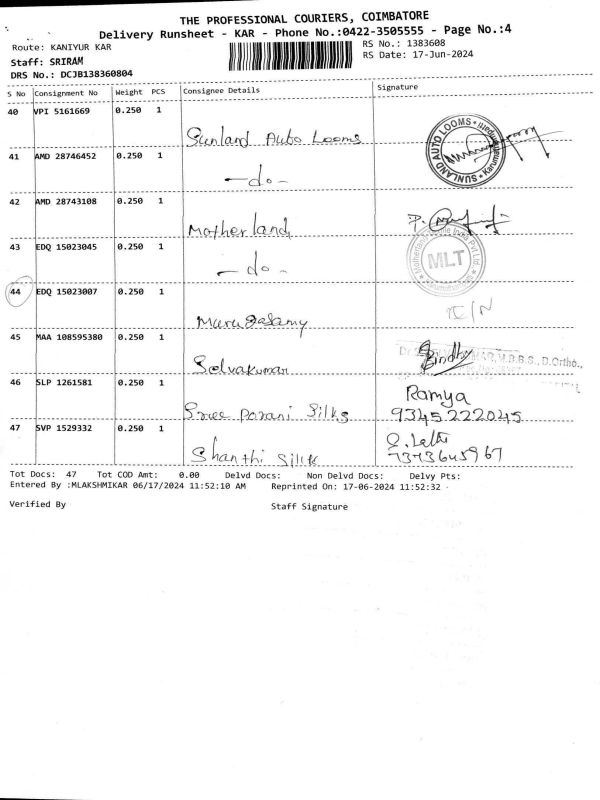 THE PROFESSIONAL COURIERS, COIMBATORE
Delivery Runsheet - KAR - Phone No.:0422-3505555 - Page No.:4
Route: KANIYUR KAR
RS No.: 1383608
Staff: SRIRAM
RS Date: 17-Jun-2024
DRS No.: DCJB138360804
S No Consignment No Weight PCS Consignee Details Signature
40 VPI 5161669 0.250 1
Sunland Auto Looms
SUNLAND AUTO LOOMS
41 AMD 28746452 0.250 1
-do-
42 AMD 28743108 0.250 1
Motherland
43 EDQ 15023045 0.250 1
-do-
MLT
44 EDQ 15023007 0.250 1
45 MAA 108595380 0.250 1
Selvakumar
M.B.B.S., D.Ortho.,
46 SLP 1261581 0.250 1
Sree Porani Silks
Ramya
9345222045
47 SVP 1529332 0.250 1
Shanthi Silik
Tot Docs: 47 Tot COD Amt: 0.00 Delvd Docs: Non Delvd Docs: Delvy Pts:
Entered By :MLAKSHMIKAR 06/17/2024 11:52:10 AM Reprinted On: 17-06-2024 11:52:32
Verified By
Staff Signature